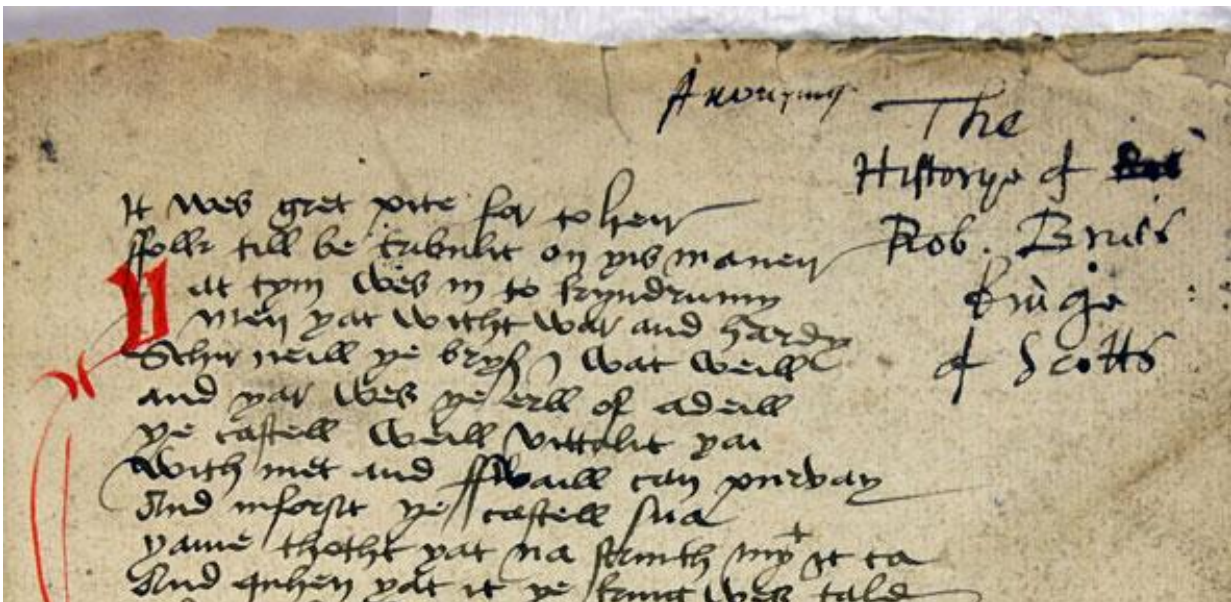 Anonymus
The
Historye of
Rob. Bruis
kinge
of Scotts
It wes gret pite for to heir
ffolk till be trubulit on yis maneir
at tym wes in to kyndrumy
men yat witht war and hardy
Schir neill ye bryß I wat weill
and yar wes ye erll of adeill
ye castell weill vittalit yai
With met and ffwaill can purvay
And inforsit ye castell sua
yaime thotht yat na strinth my^t it ta
And quhen yat it ye king wes tald